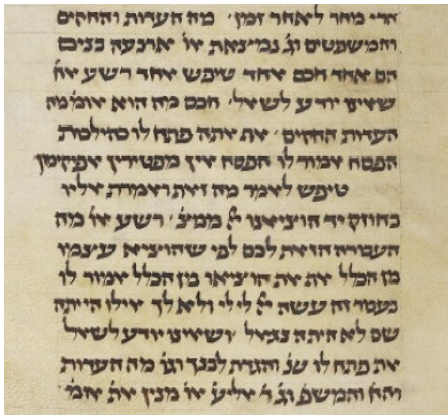 הרי מחר לאחר זמן׳ מה העדות והחקים
והמשפטים וג׳ נמיצאת או׳ ארבעה בנים
הם אחד חכם אחד טיפש אחד רשע אח׳
שאינו יודע לשאל׳ חכם מה הוא אומ׳ מה
העדות החקים׳ את אתה פתח לו כהילכות
הפסח אמור לו הפסח אין מפטירין אפיקימן
טיפש לאמר מה זאת ואמרת אליו
בחוזק יד הוציאנו יי ממצ׳ רשע או׳ מה
העבודה הזאת לכם לפי שהוציא עצמו
מן הכלל את את הוציאו מן הכלל אמור לו
בעבור זה עשה יי לי לי ולא לך אילו הייתה
שם לא היתה נגאל׳ ושאינו יודע לשאל׳
את פתח לו שנ׳ והגדת לבנך וגו׳ מה העדות
והח׳ והמשפ׳ וג׳ ר׳ אליע׳ או׳ מנין את אומ׳